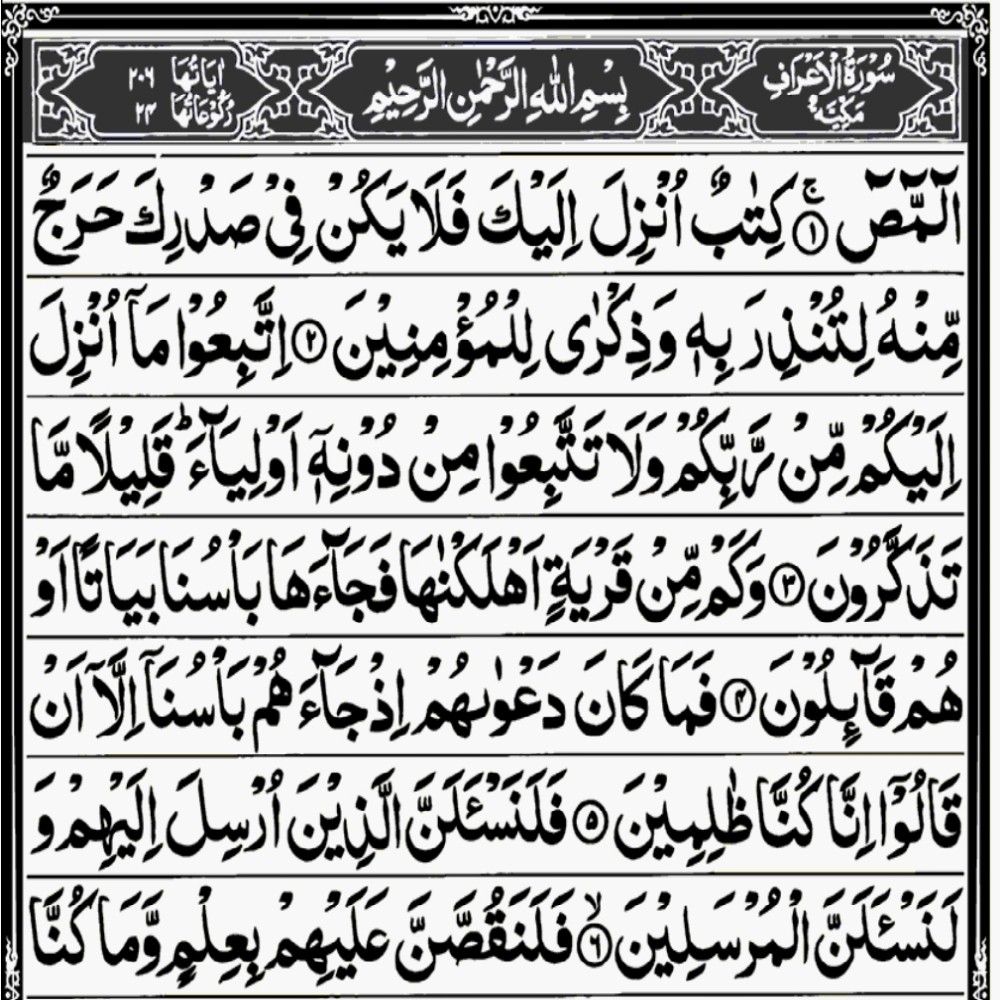 سُوْرَةُ الْاَعْرَافِ مَكِّيَّةٌ
بِسْمِ اللهِ الرَّحْمٰنِ الرَّحِيْمِ
اٰيَاتُهَا ٢٠٦
رُكُوْعَاتُهَا ٢٤
الٓمّٓصٓ ۚ﴿١﴾ كِتٰبٌ اُنْزِلَ اِلَيْكَ فَلَا يَكُنْ فِيْ صَدْرِكَ حَرَجٌ
مِّنْهُ لِتُنْذِرَ بِهٖ وَذِكْرٰى لِلْمُؤْمِنِيْنَ ﴿٢﴾ اِتَّبِعُوْا مَآ اُنْزِلَ
اِلَيْكُمْ مِّنْ رَّبِّكُمْ وَلَا تَتَّبِعُوْا مِنْ دُوْنِهٖٓ اَوْلِيَآءَ ؕ قَلِيْلًا مَّا
تَذَكَّرُوْنَ ﴿٣﴾ وَكَمْ مِّنْ قَرْيَةٍ اَهْلَكْنٰهَا فَجَآءَهَا بَاْسُنَا بَيَاتًا اَوْ
هُمْ قَآئِلُوْنَ ﴿۴﴾ فَمَا كَانَ دَعْوٰىهُمْ اِذْ جَآءَهُمْ بَاْسُنَآ اِلَّآ اَنْ
قَالُوْٓا اِنَّا كُنَّا ظٰلِمِيْنَ ﴿۵﴾ فَلَنَسْـَٔلَنَّ الَّذِيْنَ اُرْسِلَ اِلَيْهِمْ وَ
لَنَسْـَٔلَنَّ الْمُرْسَلِيْنَ ۙ﴿۶﴾ فَلَنَقُصَّنَّ عَلَيْهِمْ بِعِلْمٍ وَّمَا كُنَّا